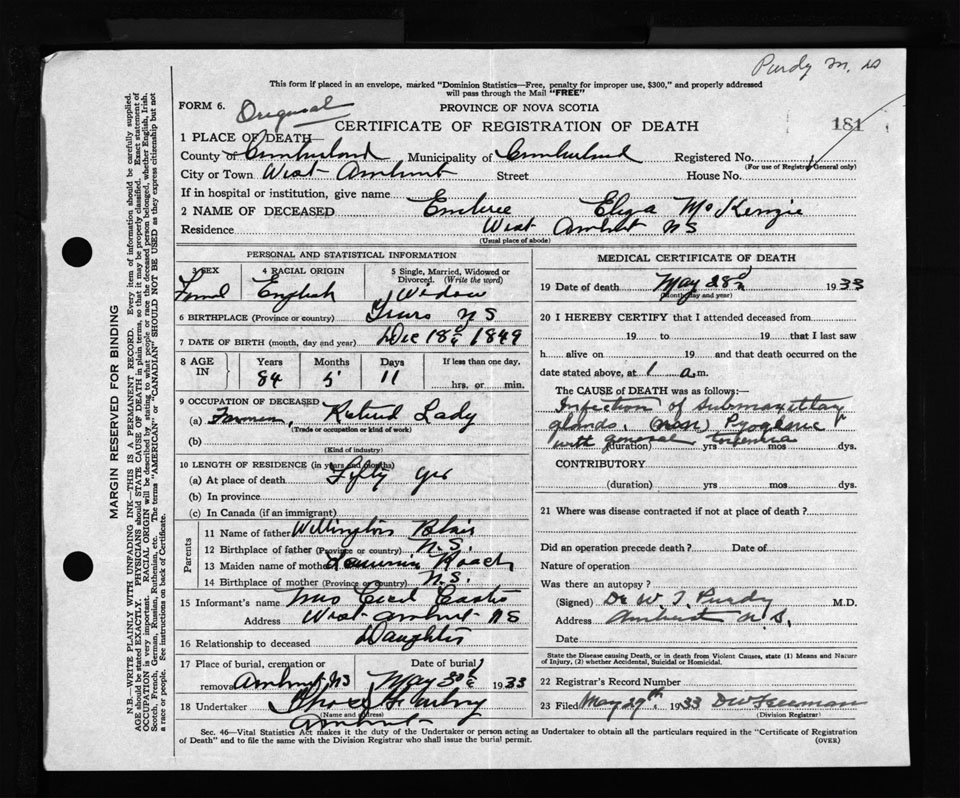 Purdy M. D
This form if placed in an envelope, marked "Dominion Statistics—Free, penalty for improper use, $300," and properly addressed
will pass through the Mail "FREE"
FORM 6. Original PROVINCE OF NOVA SCOTIA
CERTIFICATE OF REGISTRATION OF DEATH 181
1 PLACE OF DEATH—
County of Cumberland Municipality of Cumberland Registered No.
(For use of Registrar General only)
City or Town West Amherst Street House No.
If in hospital or institution, give name
2 NAME OF DECEASED Embree Eliza McKenzie
Residence West Amherst NS
(Usual place of abode)
PERSONAL AND STATISTICAL INFORMATION
3 SEX 4 RACIAL ORIGIN 5 Single, Married, Widowed or Divorced. (Write the word)
Femal English Widow
6 BIRTHPLACE (Province or country) Truro NS
7 DATE OF BIRTH (month, day and year) Dec 18th 1849
8 AGE IN Years Months Days If less than one day,
84 5 11 hrs. or min.
9 OCCUPATION OF DECEASED
(a) Retired Lady
(Trade or occupation or kind of work)
(b)
(Kind of industry)
10 LENGTH OF RESIDENCE (in years and months)
(a) At place of death Fifty yrs
(b) In province
(c) In Canada (if an immigrant)
Parents
11 Name of father Willington Blair
12 Birthplace of father (Province or country) N.S.
13 Maiden name of mother Roach
14 Birthplace of mother (Province or country) N.S.
15 Informant's name Mrs Cecil
Address West Amherst NS
16 Relationship to deceased Daughter
17 Place of burial, cremation or Date of burial
removal Amherst NS May 30th 1933
18 Undertaker
(Name and address)
Amherst
MEDICAL CERTIFICATE OF DEATH
19 Date of death May 28th 1933
(Month, day and year)
20 I HEREBY CERTIFY that I attended deceased from
19 to 19 that I last saw
h alive on 19 and that death occurred on the
date stated above, at 1 a.m.
The CAUSE of DEATH was as follows:—
Infection of submaxillary
glands. Pyogenic
with general toxemia
(duration) yrs mos dys.
CONTRIBUTORY
(duration) yrs mos dys.
21 Where was disease contracted if not at place of death?
Did an operation precede death? Date of
Nature of operation
Was there an autopsy?
(Signed) Dr W. T. Purdy M.D.
Address Amherst N.S.
Date
State the Disease causing Death, or in death from Violent Causes, state (1) Means and Nature
of Injury, (2) whether Accidental, Suicidal or Homicidal.
22 Registrar's Record Number
23 Filed May 29th 1933
(Division Registrar)
Sec. 46—Vital Statistics Act makes it the duty of the Undertaker or person acting as Undertaker to obtain all the particulars required in the "Certificate of Registration
of Death" and to file the same with the Division Registrar who shall issue the burial permit. (OVER)
MARGIN RESERVED FOR BINDING
N.B.—WRITE PLAINLY WITH UNFADING INK—THIS IS A PERMANENT RECORD. Every item of information should be carefully supplied.
AGE should be stated EXACTLY. PHYSICIANS should STATE CAUSE OF DEATH in plain terms, so that it may be properly classified. Exact statement of
OCCUPATION is very important. RACIAL ORIGIN will be described by stating to what people or race the deceased person belonged, whether English, Irish,
Scotch, French, German, Russian, Ruthenian, etc. The terms "AMERICAN" or "CANADIAN" SHOULD NOT BE USED as they express citizenship but not
a race or people. See instructions on back of Certificate.